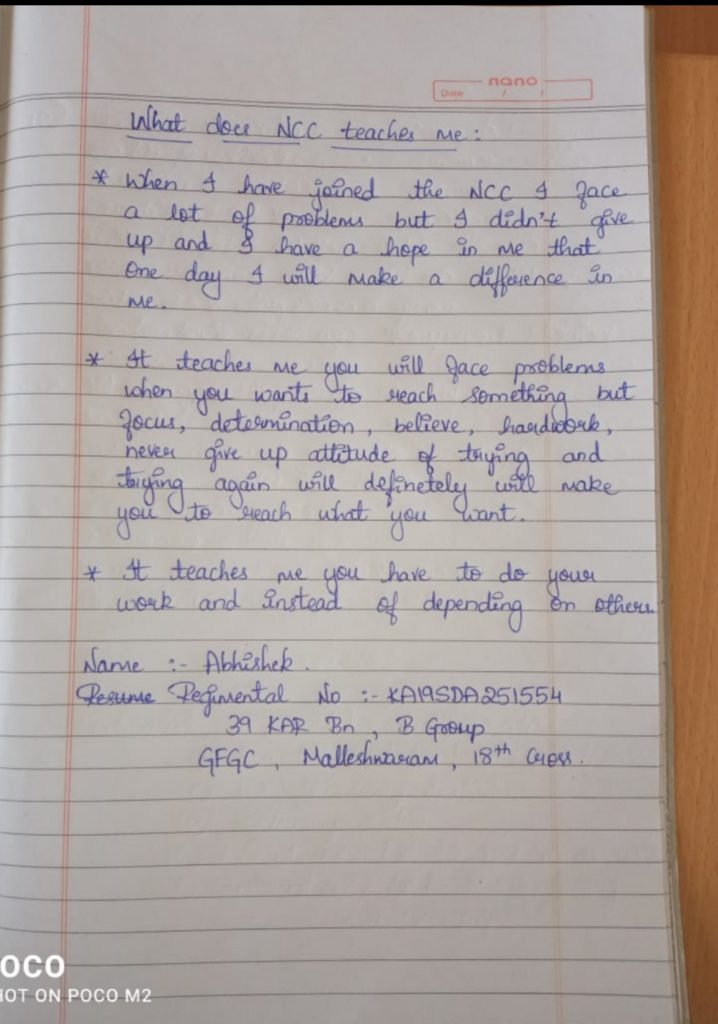 nano
Date / /
What does NCC teaches me :
* When I have joined the NCC I face
a lot of problems but I didn't give
up and I have a hope in me that
one day I will make a difference in
me.
* It teaches me you will face problems
when you wants to reach something but
focus, determination, believe, hardwork,
never give up attitude of trying and
trying again will definetely will make
you to reach what you want.
* It teaches me you have to do your
work and instead of depending on others.
Name :- Abhishek.
Resume Regimental No :- KA19SDA251554
39 KAR Bn, B Group
GFGC, Malleshwaram, 18th Cross.
OCO
HOT ON POCO M2